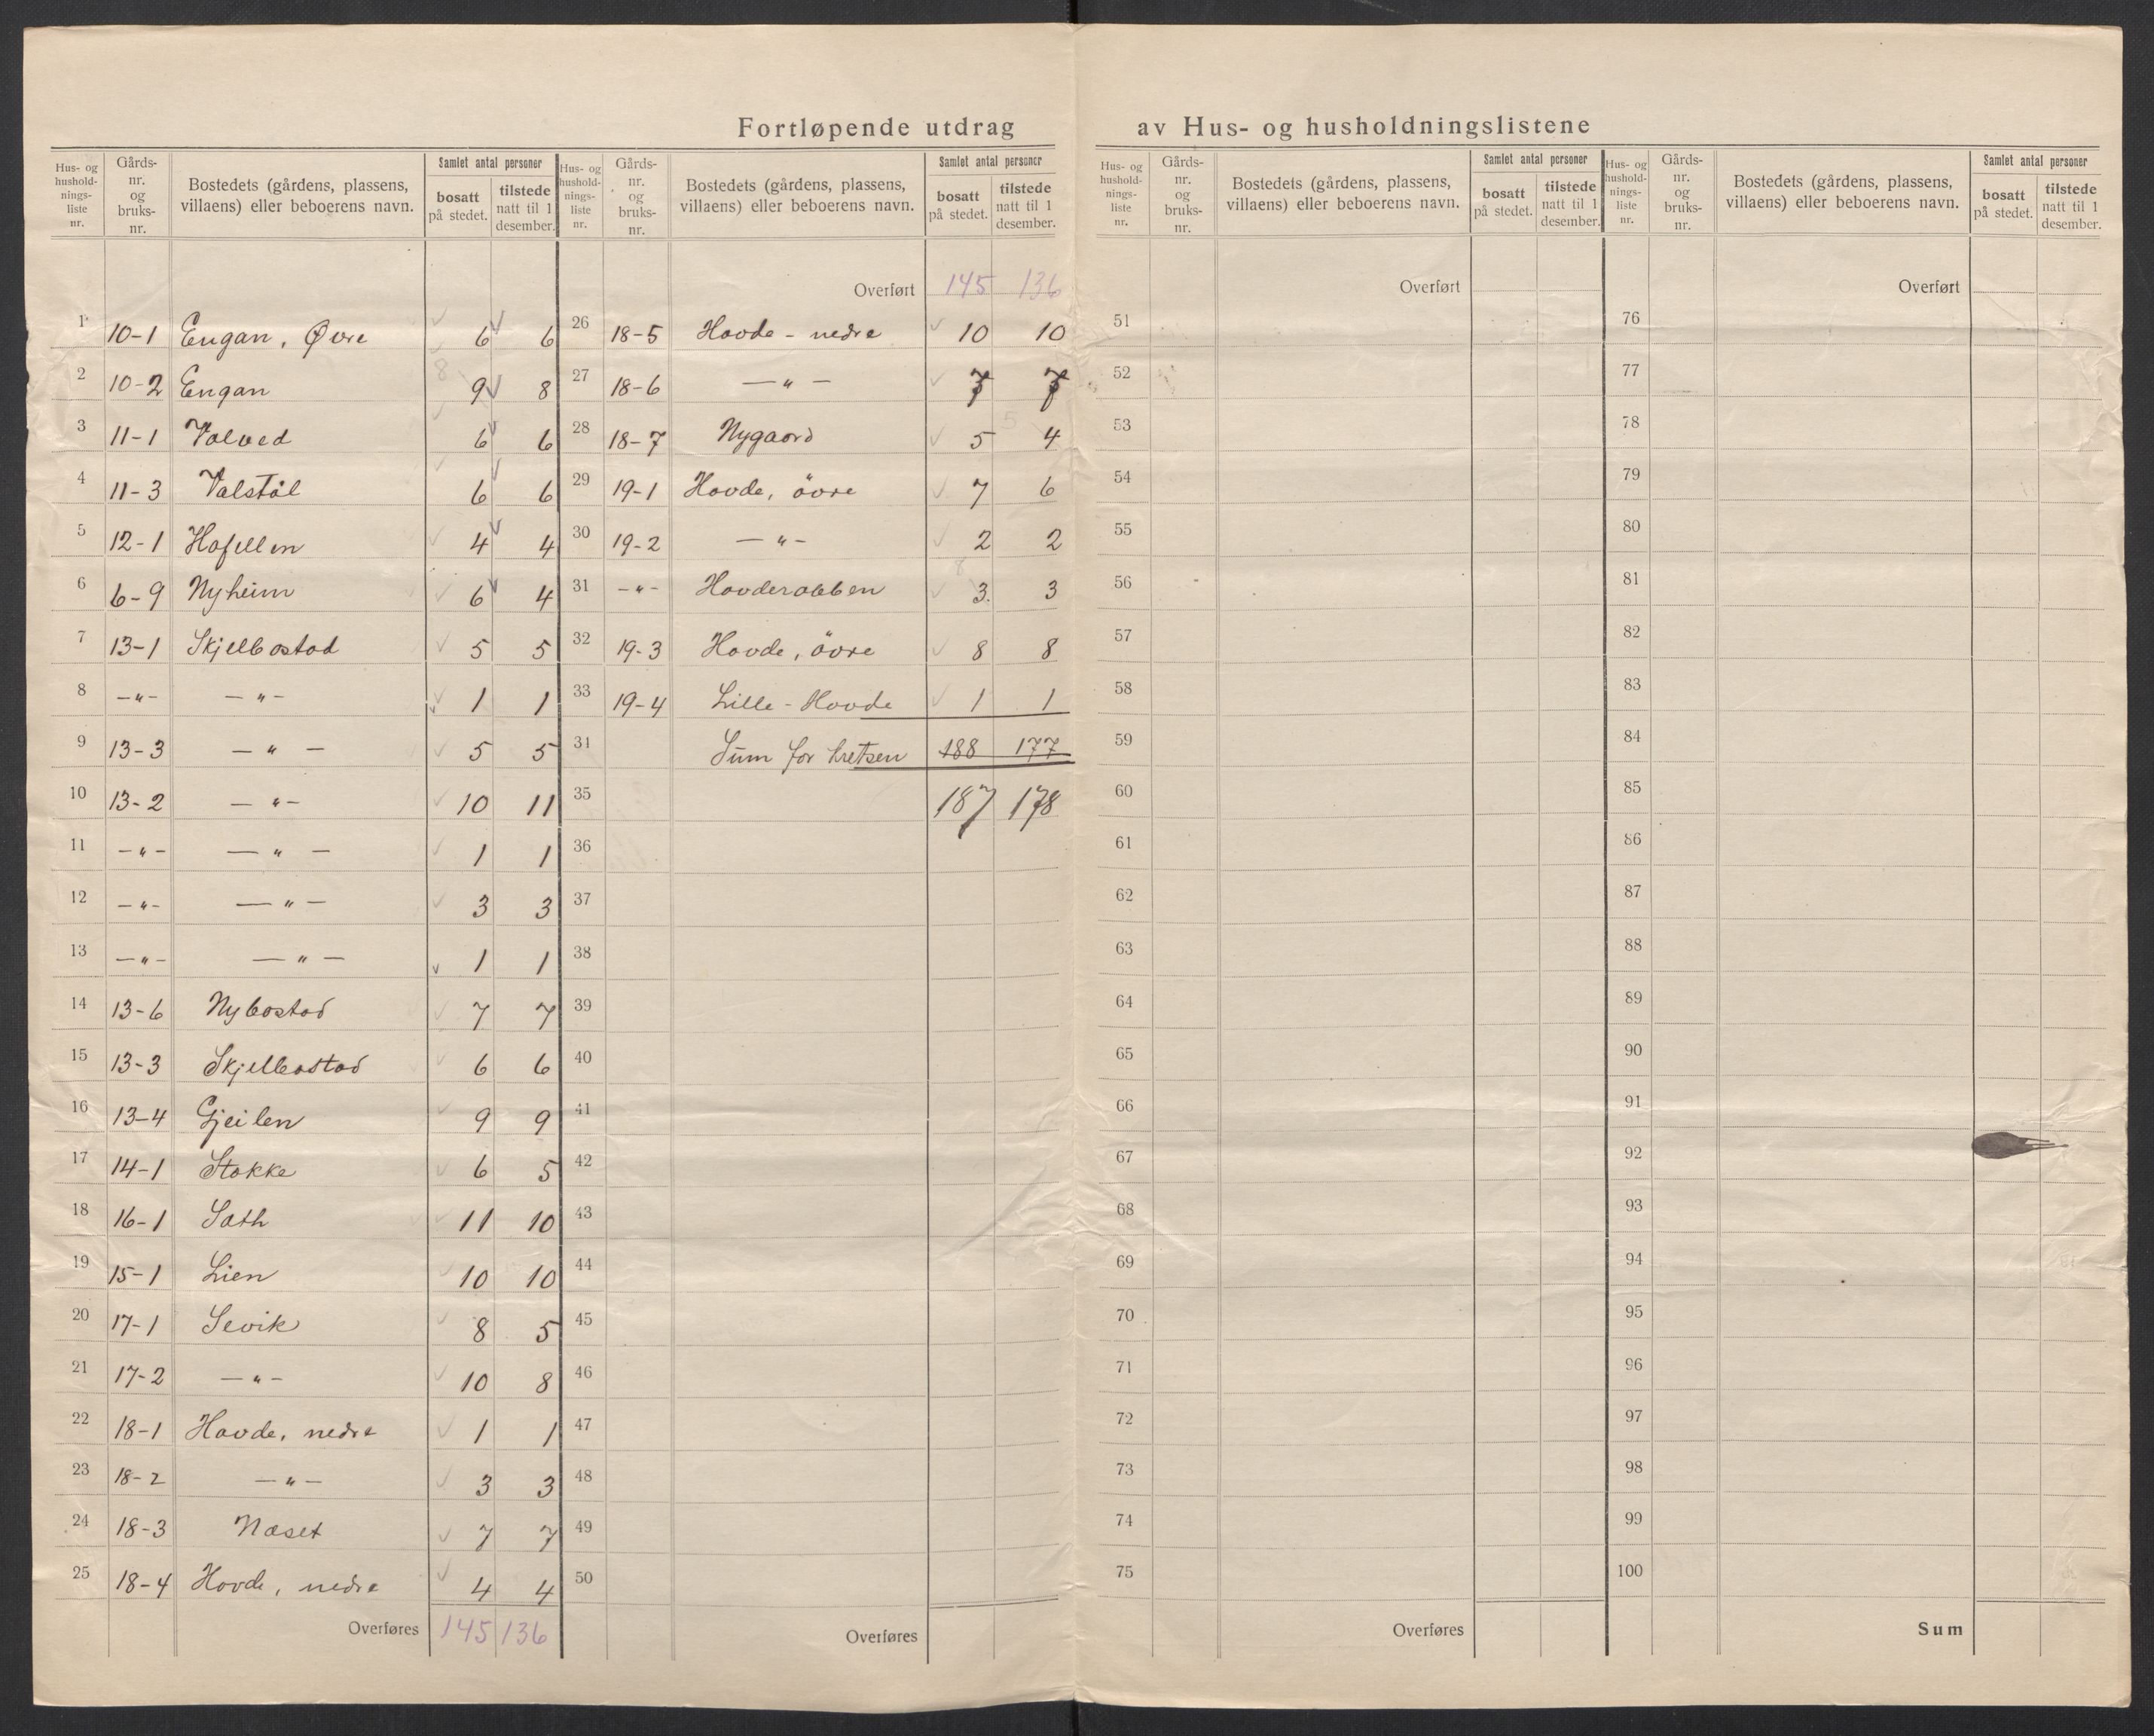 Fortløpende utdrag av Hus- og husholdningslistene
Hus- og hushold-nings-liste nr. Gårds-nr. og bruks-nr. Bostedets (gårdens, plassens, villaens) eller beboerens navn. Samlet antal personer bosatt på stedet. tilstede natt til 1 desember.
1 10-1 Engan, Øvre 6 6
2 10-2 Engan 8 9 8
3 11-1 Valved 6 6
4 11-3 Valstål 6 6
5 12-1 Hafellen 4 4
6 6-9 Nyheim 6 4
7 13-1 Skjelbostad 5 5
8 —"— —"— 1 1
9 13-3 —"— 5 5
10 13-2 —"— 10 11
11 —"— —"— 1 1
12 —"— —"— 3 3
13 —"— —"— 1 1
14 13-6 Nybostad 7 7
15 13-3 Skjelbostad 6 6
16 13-4 Gjeilen 9 9
17 14-1 Stokke 6 5
18 16-1 Sath 11 10
19 15-1 Lien 10 10
20 17-1 Sevik 8 5
21 17-2 —"— 10 8
22 18-1 Hovde, nedre 1 1
23 18-2 —"— 3 3
24 18-3 Næset 7 7
25 18-4 Hovde, nedre 4 4
Overføres 145 136
Hus- og hushold-nings-liste nr. Gårds-nr. og bruks-nr. Bostedets (gårdens, plassens, villaens) eller beboerens navn. Samlet antal personer bosatt på stedet. tilstede natt til 1 desember.
Overført 145 136
26 18-5 Hovde - nedre 10 10
27 18-6 —"— 7 7
28 18-7 Nygaard 5 4
29 19-1 Hovde, övre 7 6
30 19-2 —"— 2 2
31 —"— Hovderabben 3 3
32 19-3 Hovde, övre 8 8
33 19-4 Lille - Hovde 1 1
31 Sum for kretsen 188 177
35 187 178
36
37
38
39
40
41
42
43
44
45
46
47
48
49
50
Overføres
Hus- og hushold-nings-liste nr. Gårds-nr. og bruks-nr. Bostedets (gårdens, plassens, villaens) eller beboerens navn. Samlet antal personer bosatt på stedet. tilstede natt til 1 desember.
Overført
51
52
53
54
55
56
57
58
59
60
61
62
63
64
65
66
67
68
69
70
71
72
73
74
75
Overføres
Hus- og hushold-nings-liste nr. Gårds-nr. og bruks-nr. Bostedets (gårdens, plassens, villaens) eller beboerens navn. Samlet antal personer bosatt på stedet. tilstede natt til 1 desember.
Overført
76
77
78
79
80
81
82
83
84
85
86
87
88
89
90
91
92
93
94
95
96
97
98
99
100
Sum